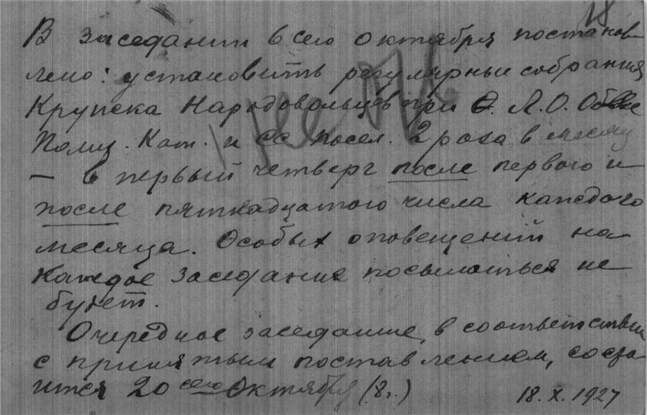 18
В заседании 6 сего октября постанов
лено: установить регулярные собрания
Кружка Народовольцев при Л.О. О-ве
Полит. Кат. и сс. посел. 2 раза в месяц
— в первый четверг после первого и
после пятнадцатого числа каждого
месяца. Особых оповещений на
каждое заседание посылаться не
будет.
Очередное заседание, в соответствии
с принятым постановлением, состо
ится 20 сего октября (8 ч.)
18.X.1927